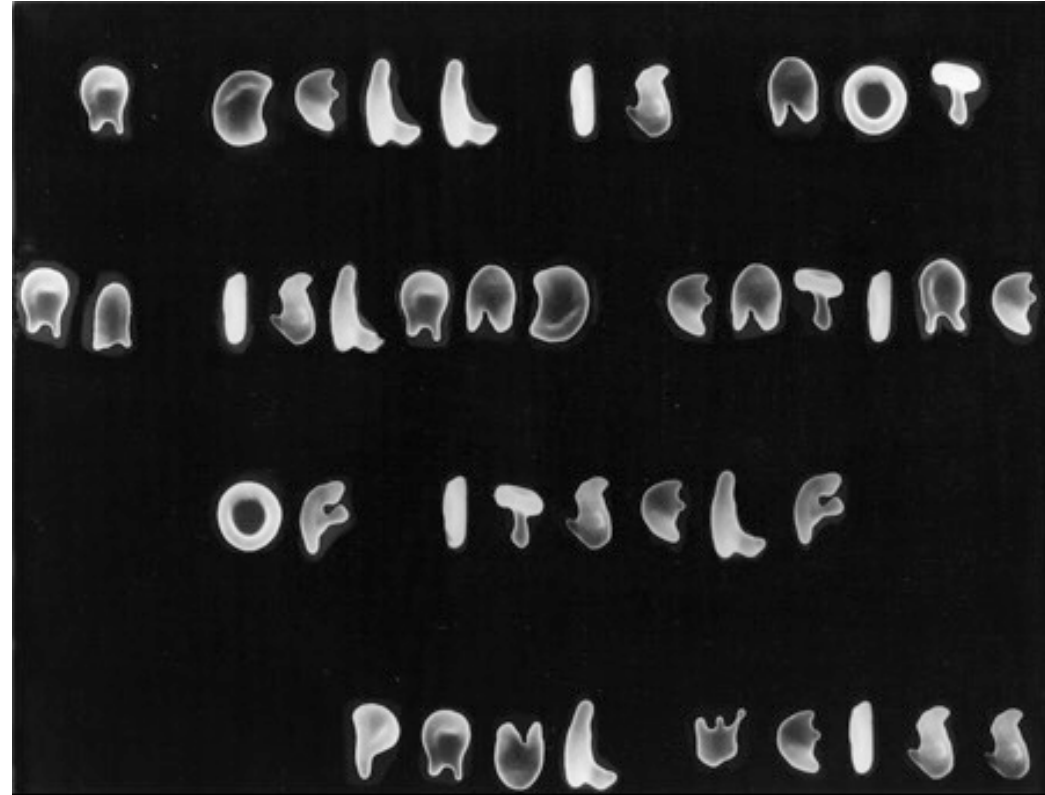 A CELL IS NOT
AN ISLAND ENTIRE
OF ITSELF
PAUL WEISS